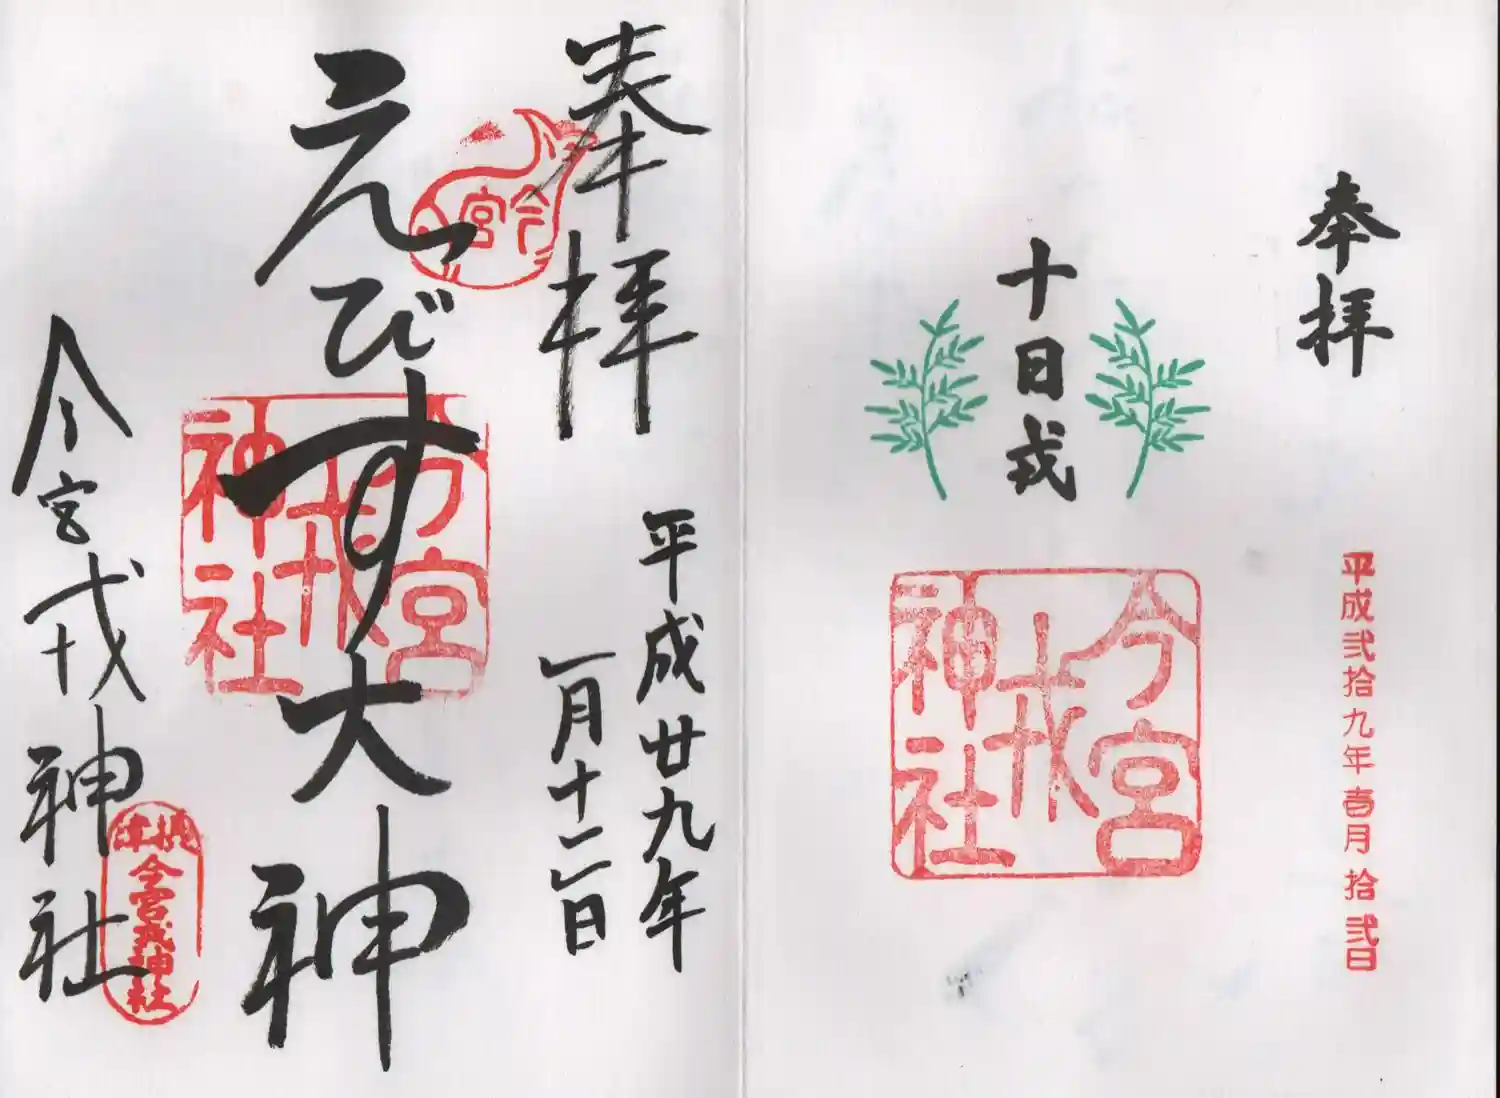 奉拝
十日戎
今宮戎神社
平成弐拾九年壱月拾弐日
奉拝
平成廿九年
一月十二日
今宮
えびす大神
今宮戎神社
今宮戎神社
摂津
今宮戎神社